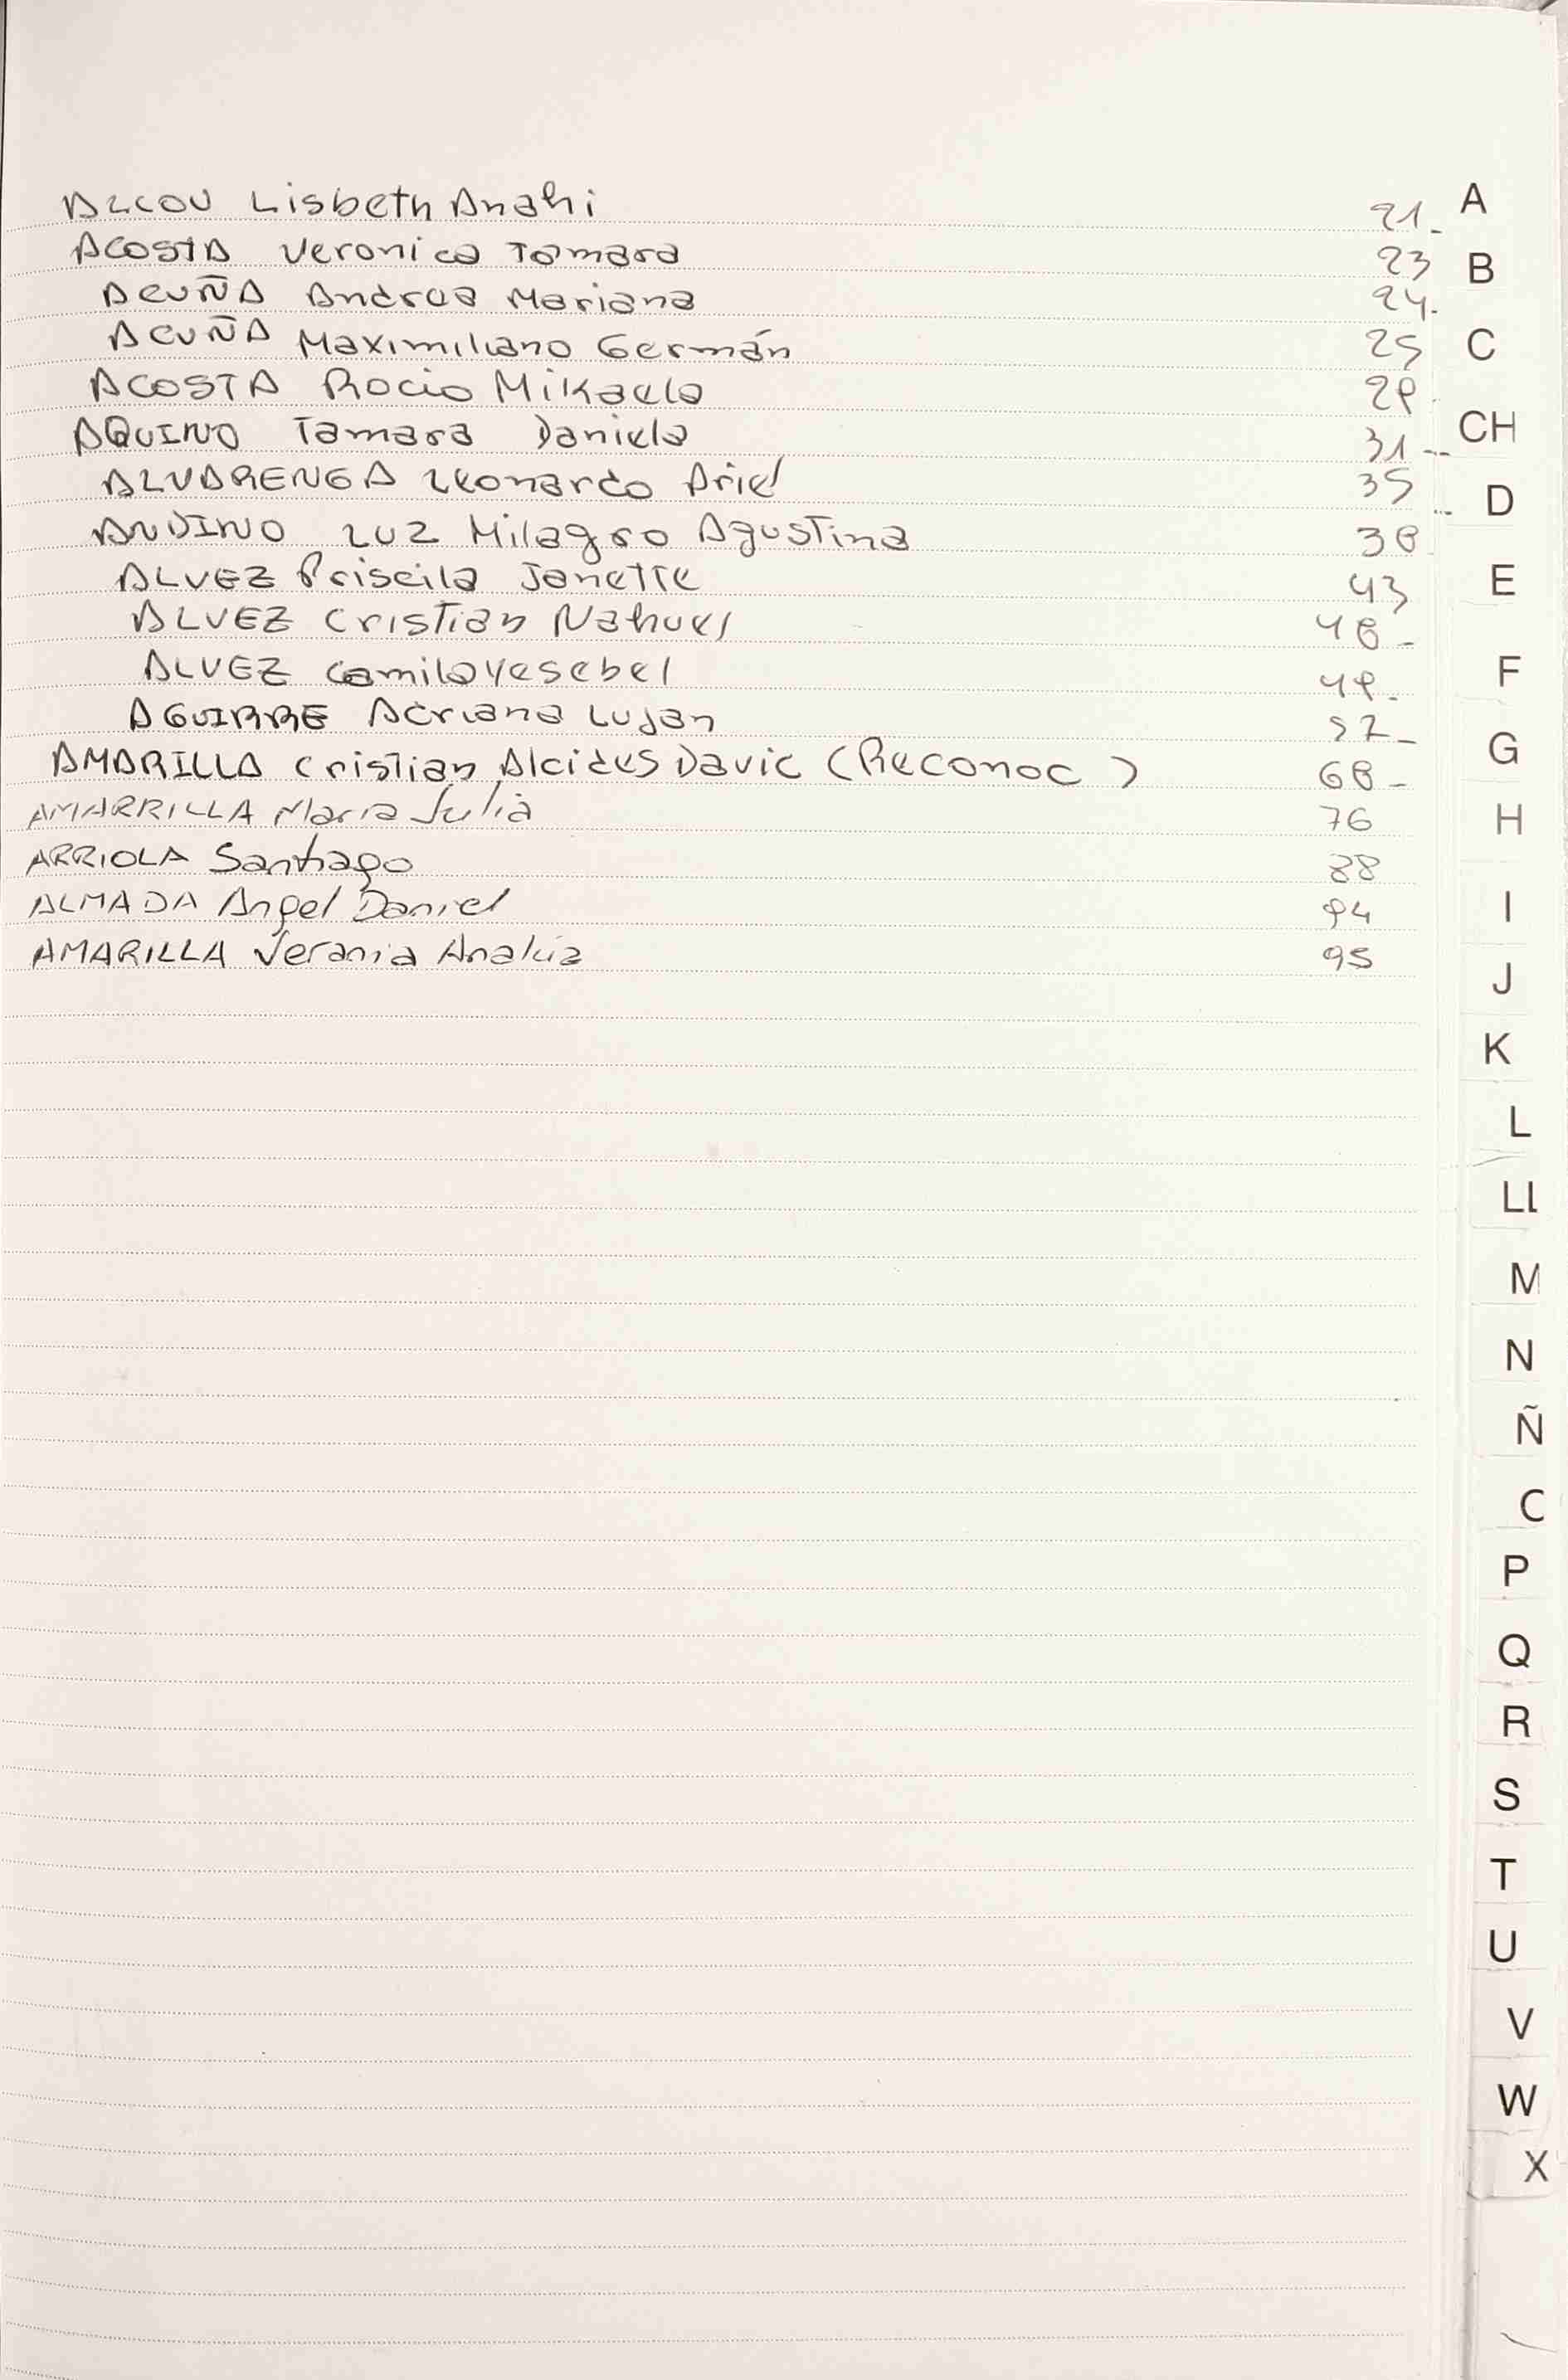 ALCOU Lisbeth Anahi 21_ A
ACOSTA Veronica Tamara 23 B
ACUÑA Andrea Mariana 24.
ACUÑA Maximiliano Germán 25 C
ACOSTA Rocio Mikaela 29
AQUINO Tamara Daniela 31 CH
ALVARENGA Leonardo Ariel 35 D
ANDINO Luz Milagro Agustina 38
ALVEZ Priscila Janette 43 E
ALVEZ Cristian Nahuel 48_
ALVEZ Camila Yesebel 49. F
AGUIRRE Adriana Lujan 57_
AMARILLA Cristian Alcides David (Reconoc ) 68_ G
AMARRILLA María Julia 76 H
ARRIOLA Santiago 88
ALMADA Angel Daniel 94 I
AMARILLA Analía 95
J
K
L
LL
M
N
Ñ
O
P
Q
R
S
T
U
V
W
X